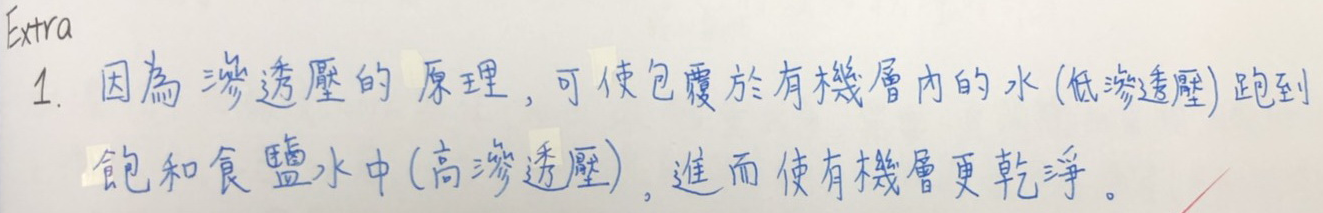 Extra
1. 因為滲透壓的原理，可使包覆於有機層內的水(低滲透壓)跑到
飽和食鹽水中(高滲透壓)，進而使有機層更乾淨。